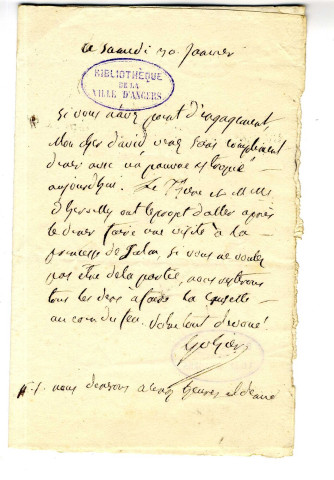 ce Samedi 30 Janvier
BIBLIOTHÈQUE
DE LA
VILLE D'ANGERS
Si vous n'avez point d'engagement
Mon cher david venez sans compliment
diner avec un pauvre estropié
aujourdhui. Le Mme
ont le projet d'aller après
le diner faire une visite à la
princesse de Salm, si vous ne voulez
pas être de la partie, nous resterons
tous les deux a faire la causette
au coin du feu. Votre tout dévoué
p.s. nous dinons a cinq heures et demie